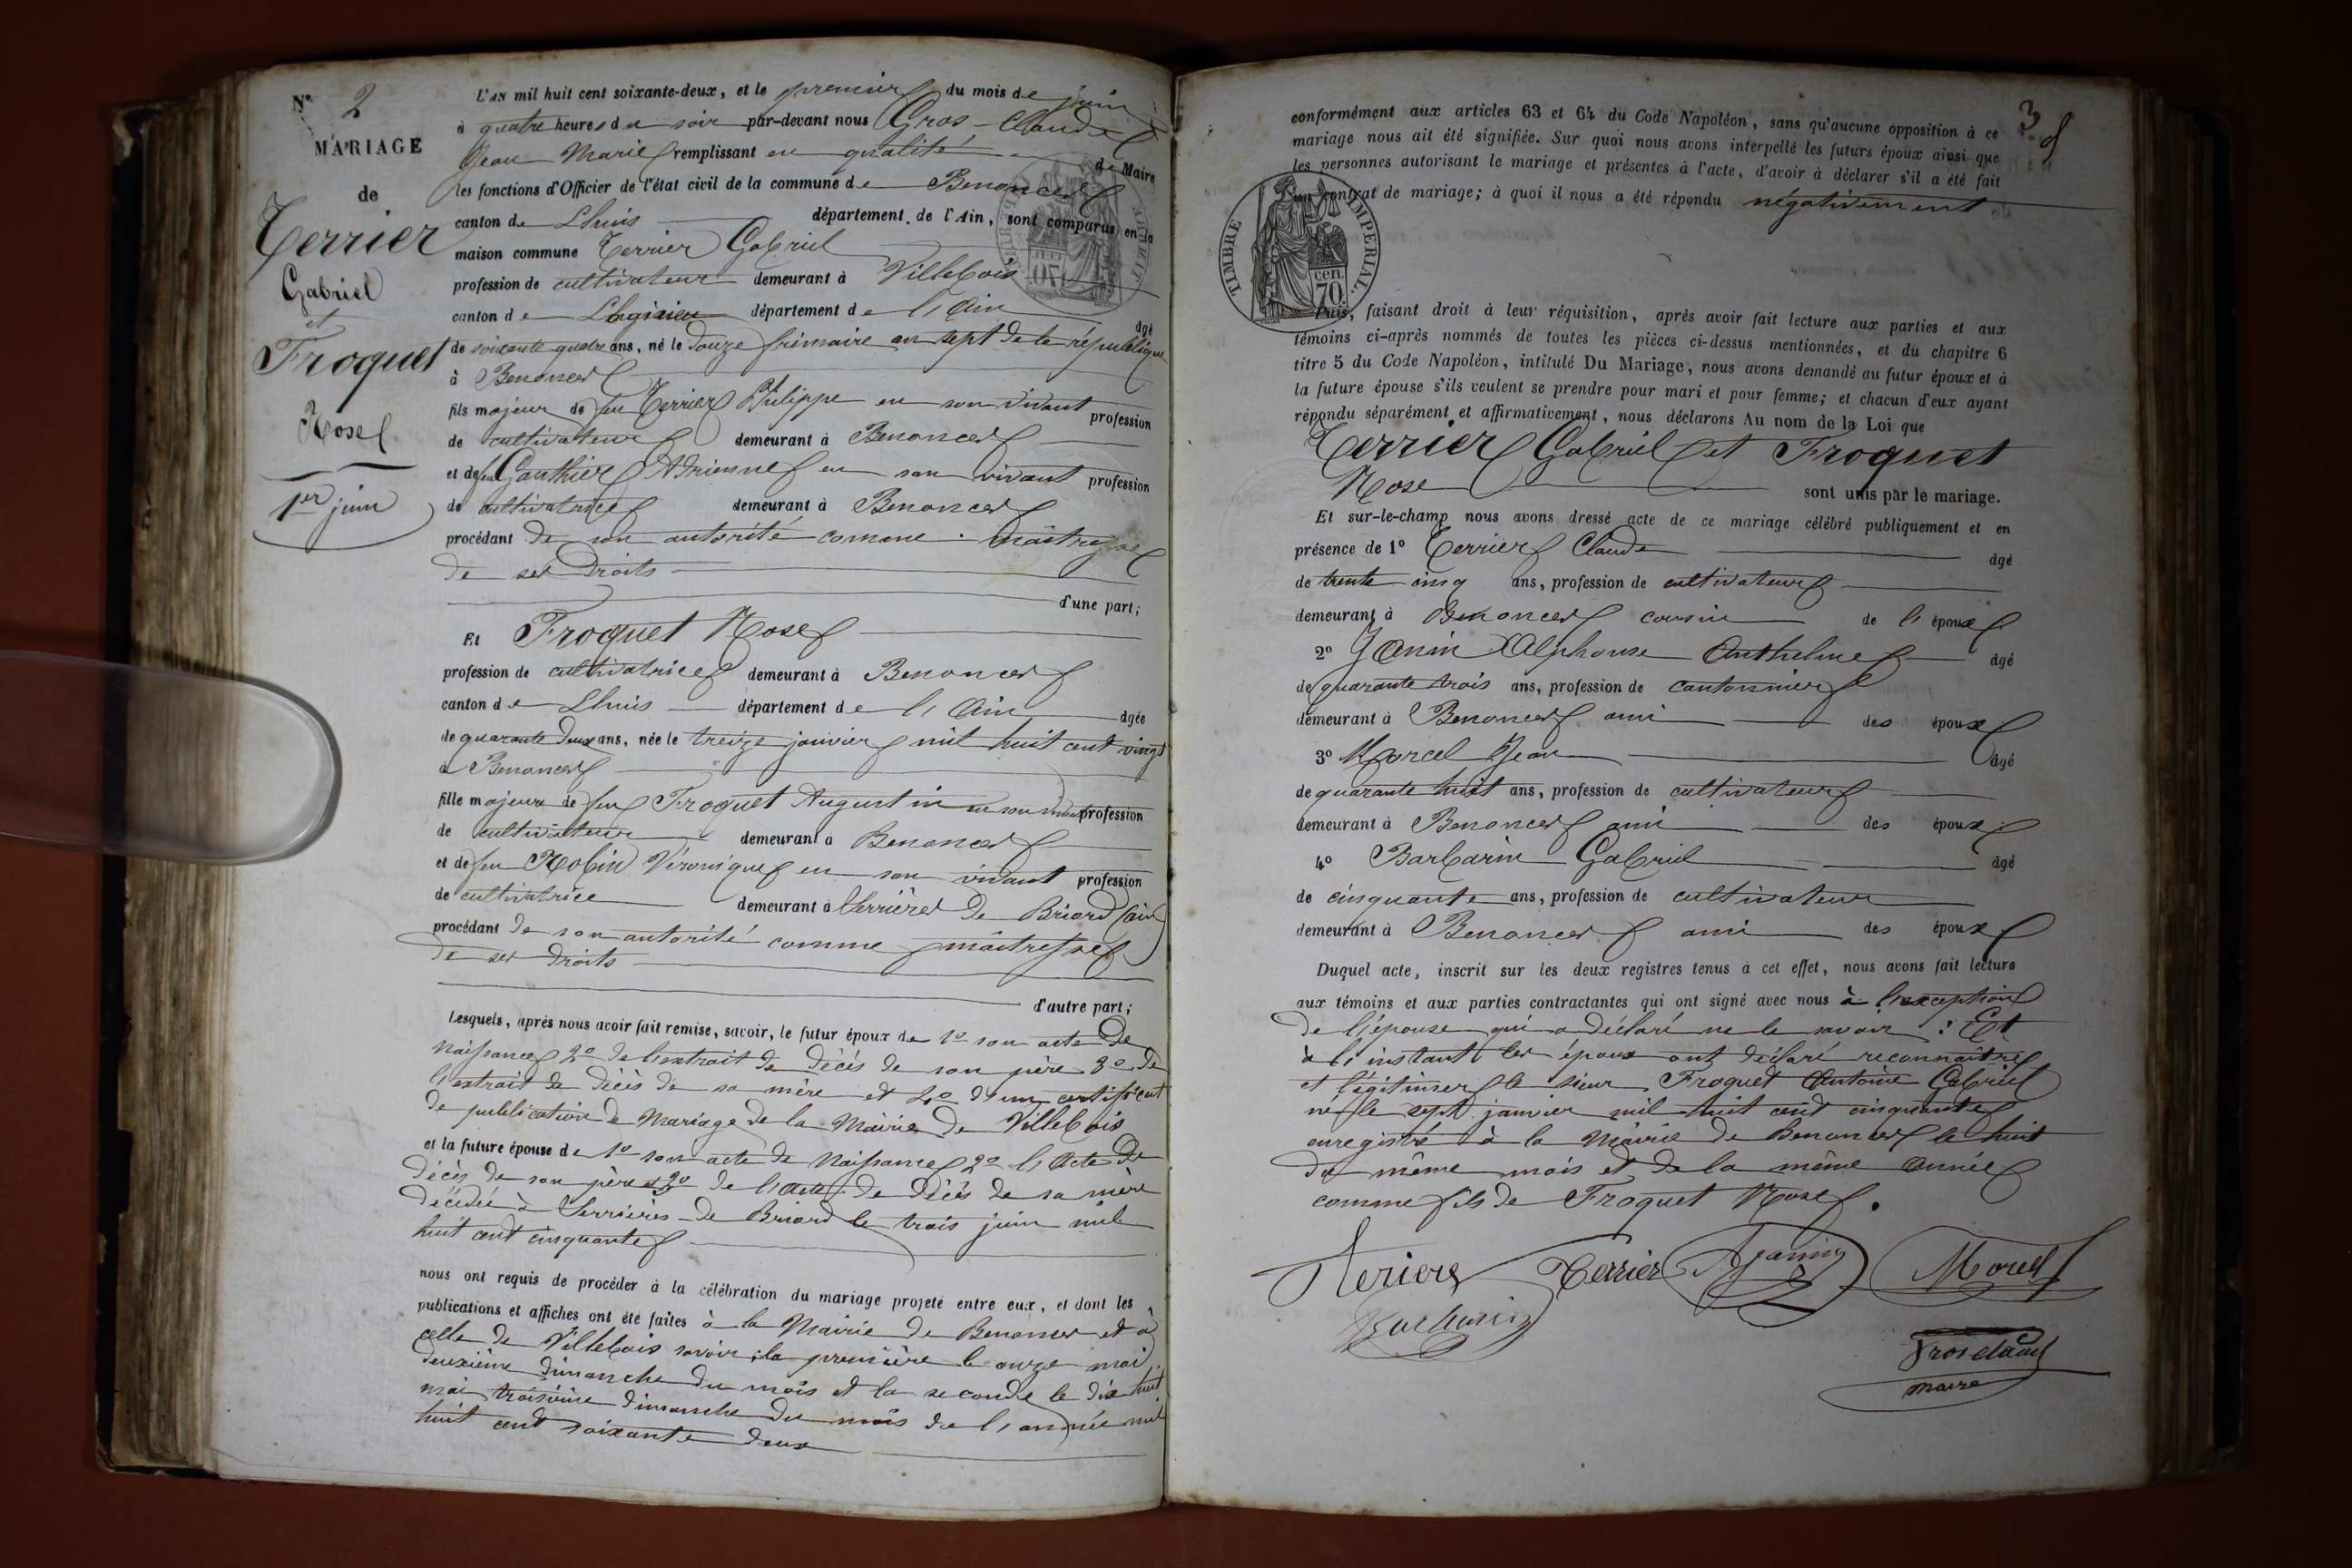 N° 2
MARIAGE
de
Terrier
Gabriel
et
Froquet
Rose
1er juin
L'AN mil huit cent soixante-deux, et le premier du mois de juin
à quatre heures du soir par-devant nous Gros-Claude
Jean Marie remplissant en qualité de Maire
les fonctions d'Officier de l'état civil de la commune de Benonces
canton de Lhuis département de l'Ain, sont comparus en la
maison commune Terrier Gabriel
profession de cultivateur demeurant à Villebois
canton de Lagnieu département de l'Ain âgé
de soixante quatre ans, né le douze frimaire an sept de la république
à Benonces
fils majeur de feu Terrier Philippe en son vivant profession
de cultivateur demeurant à Benonces
et de feu Gauthier Adrienne en son vivant profession
de cultivatrice demeurant à Benonces
procédant de son autorité comme maitresse
de ses droits
d'une part;
Et Froquet Rose
profession de cultivatrice demeurant à Benonces
canton de Lhuis département de l'Ain âgée
de quarante deux ans, née le treize janvier mil huit cent vingt
à Benonces
fille majeure de feu Froquet Augustin en son vivant profession
de cultivateur demeurant à Benonces
et de feu Robin Véronique en son vivant profession
de cultivatrice demeurant à Serrières de Briord (ain)
procédant de son autorité comme maitresse
de ses droits
d'autre part;
Lesquels, après nous avoir fait remise, savoir, le futur époux de 1° son acte de
naissance 2° de l'extrait de décès de son père 3° de
l'extrait de décès de sa mère et 4° d'un certificat
de publication de mariage de la Mairie de Villebois
et la future épouse de 1° son acte de naissance 2° l'acte de
décès de son père et 3° de l'acte de décès de sa mère
décédée à Serrières de Briord le trois juin mil
huit cent cinquante
nous ont requis de procéder à la célébration du mariage projeté entre eux, et dont les
publications et affiches ont été faites à la Mairie de Benonces et à
celle de Villebois savoir : la première le onze mai
deuxième dimanche du mois et la seconde le dix huit
mai troisième dimanche du mois de l'année mil
huit cent soixante deux
3
conformément aux articles 63 et 64 du Code Napoléon, sans qu'aucune opposition à ce
mariage nous ait été signifiée. Sur quoi nous avons interpellé les futurs époux ainsi que
les personnes autorisant le mariage et présentes à l'acte, d'avoir à déclarer s'il a été fait
un contrat de mariage; à quoi il nous a été répondu négativement
TIMBRE IMPERIAL
cen.
70
Puis, faisant droit à leur réquisition, après avoir fait lecture aux parties et aux
témoins ci-après nommés de toutes les pièces ci-dessus mentionnées, et du chapitre 6
titre 5 du Code Napoléon, intitulé Du Mariage, nous avons demandé au futur époux et à
la future épouse s'ils veulent se prendre pour mari et pour femme; et chacun d'eux ayant
répondu séparément et affirmativement, nous déclarons Au nom de la Loi que
Terrier Gabriel et Froquet
Rose sont unis par le mariage.
Et sur-le-champ nous avons dressé acte de ce mariage célébré publiquement et en
présence de 1° Terrier Claude âgé
de trente cinq ans, profession de cultivateur
demeurant à Benonces cousin de l'époux
2° Janin Alphonse Anthelme âgé
de quarante trois ans, profession de cantonnier
demeurant à Benonces ami des époux
3° Morcel Jean âgé
de quarante huit ans, profession de cultivateur
demeurant à Benonces ami des époux
4° Barbarin Gabriel âgé
de cinquante ans, profession de cultivateur
demeurant à Benonces ami des époux
Duquel acte, inscrit sur les deux registres tenus à cet effet, nous avons fait lecture
aux témoins et aux parties contractantes qui ont signé avec nous à l'exception
de l'épouse qui a déclaré ne le savoir : Et
à l'instant les époux ont déclaré reconnaitre
et légitimer le sieur Froquet Antoine Gabriel
né le sept janvier mil huit cent cinquante
enregistré à la Mairie de Benonces le huit
du même mois et de la même année
comme fils de Froquet Rose.
Terrier Janin Morcel
Barbarin
maire